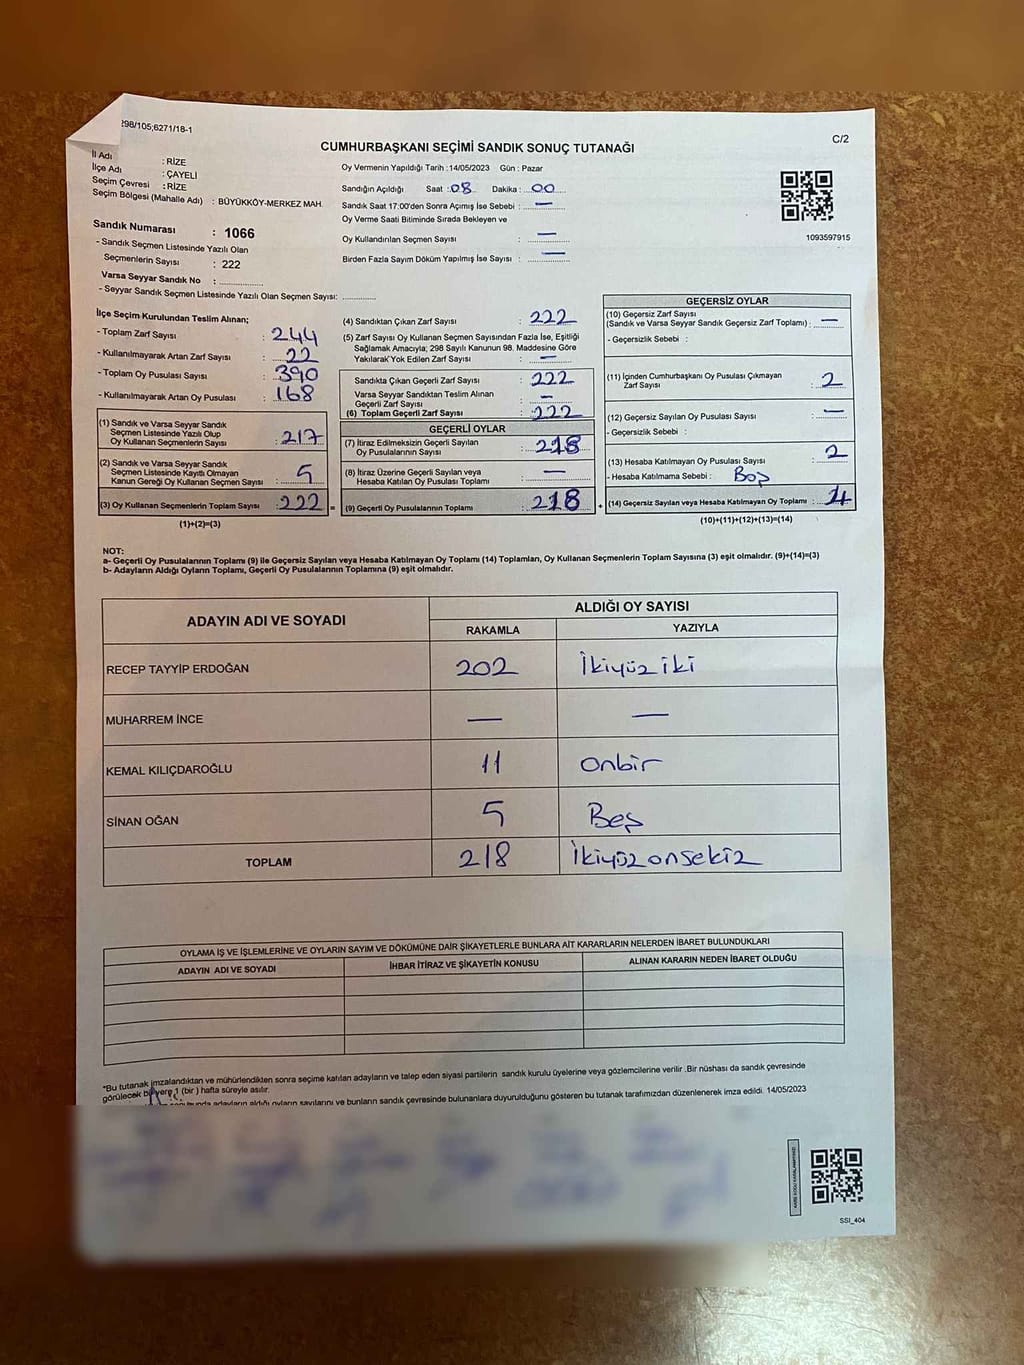 298/105;6271/18-1
C/2
CUMHURBAŞKANI SEÇİMİ SANDIK SONUÇ TUTANAĞI
İl Adı : RİZE
İlçe Adı : ÇAYELİ
Seçim Çevresi : RİZE
Seçim Bölgesi (Mahalle Adı) : BÜYÜKKÖY-MERKEZ MAH.
Sandık Numarası : 1066
- Sandık Seçmen Listesinde Yazılı Olan
Seçmenlerin Sayısı : 222
Varsa Seyyar Sandık No :
- Seyyar Sandık Seçmen Listesinde Yazılı Olan Seçmen Sayısı:
Oy Vermenin Yapıldığı Tarih :14/05/2023 Gün : Pazar
Sandığın Açıldığı Saat :08 Dakika : 00
Sandık Saat 17:00'den Sonra Açımış İse Sebebi : —
Oy Verme Saati Bitiminde Sırada Bekleyen ve
Oy Kullandırılan Seçmen Sayısı : —
Birden Fazla Sayım Döküm Yapılmış İse Sayısı : —
1093597915
İlçe Seçim Kurulundan Teslim Alınan;
- Toplam Zarf Sayısı : 244
- Kullanılmayarak Artan Zarf Sayısı : 22
- Toplam Oy Pusulası Sayısı : 390
- Kullanılmayarak Artan Oy Pusulası : 168
(1) Sandık ve Varsa Seyyar Sandık
Seçmen Listesinde Yazılı Olup
Oy Kullanan Seçmenlerin Sayısı : 217
(2) Sandık ve Varsa Seyyar Sandık
Seçmen Listesinde Kayıtlı Olmayan
Kanun Gereği Oy Kullanan Seçmen Sayısı : 5
(3) Oy Kullanan Seçmenlerin Toplam Sayısı : 222 =
(1)+(2)=(3)
(4) Sandıktan Çıkan Zarf Sayısı : 222
(5) Zarf Sayısı Oy Kullanan Seçmen Sayısından Fazla İse, Eşitliği
Sağlamak Amacıyla; 298 Sayılı Kanunun 98. Maddesine Göre
Yakılarak Yok Edilen Zarf Sayısı : —
Sandıkta Çıkan Geçerli Zarf Sayısı : 222
Varsa Seyyar Sandıktan Teslim Alınan
Geçerli Zarf Sayısı : —
(6) Toplam Geçerli Zarf Sayısı : 222
GEÇERLİ OYLAR
(7) İtiraz Edilmeksizin Geçerli Sayılan
Oy Pusulalarının Sayısı : 218
(8) İtiraz Üzerine Geçerli Sayılan veya
Hesaba Katılan Oy Pusulası Toplamı : —
(9) Geçerli Oy Pusulalarının Toplamı : 218 +
GEÇERSİZ OYLAR
(10) Geçersiz Zarf Sayısı
(Sandık ve Varsa Seyyar Sandık Geçersiz Zarf Toplamı) : —
- Geçersizlik Sebebi :
(11) İçinden Cumhurbaşkanı Oy Pusulası Çıkmayan
Zarf Sayısı : 2
(12) Geçersiz Sayılan Oy Pusulası Sayısı : —
- Geçersizlik Sebebi :
(13) Hesaba Katılmayan Oy Pusulası Sayısı : 2
- Hesaba Katılmama Sebebi : Boş
(14) Geçersiz Sayılan veya Hesaba Katılmayan Oy Toplamı : 4
(10)+(11)+(12)+(13)=(14)
NOT:
a- Geçerli Oy Pusulalarının Toplamı (9) ile Geçersiz Sayılan veya Hesaba Katılmayan Oy Toplamı (14) Toplamları, Oy Kullanan Seçmenlerin Toplam Sayısına (3) eşit olmalıdır. (9)+(14)=(3)
b- Adayların Aldığı Oyların Toplamı, Geçerli Oy Pusulalarının Toplamına (9) eşit olmalıdır.
ADAYIN ADI VE SOYADI
ALDIĞI OY SAYISI
RAKAMLA YAZIYLA
RECEP TAYYİP ERDOĞAN 202 İkiyüz iki
MUHARREM İNCE — —
KEMAL KILIÇDAROĞLU 11 Onbir
SİNAN OĞAN 5 Beş
TOPLAM 218 İkiyüzonsekiz
OYLAMA İŞ VE İŞLEMLERİNE VE OYLARIN SAYIM VE DÖKÜMÜNE DAİR ŞİKAYETLERLE BUNLARA AİT KARARLARIN NELERDEN İBARET BULUNDUKLARI
ADAYIN ADI VE SOYADI İHBAR İTİRAZ VE ŞİKAYETİN KONUSU ALINAN KARARIN NEDEN İBARET OLDUĞU
*Bu tutanak imzalandıktan ve mühürlendikten sonra seçime katılan adayların ve talep eden siyasi partilerin sandık kurulu üyelerine veya gözlemcilerine verilir .Bir nüshası da sandık çevresinde
görülecek bir yere 1 (bir ) hafta süreyle asılır.
adayların aldığı oyların sayılarını ve bunların sandık çevresinde bulunanlara duyurulduğunu gösteren bu tutanak tarafımızdan düzenlenerek imza edildi. 14/05/2023
SSI_404